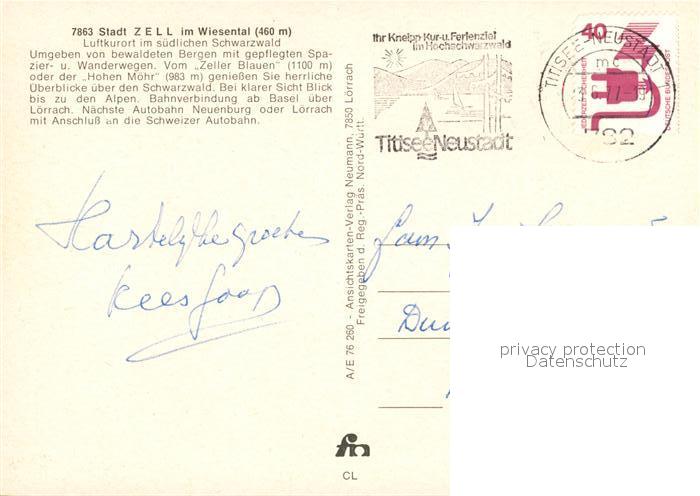 7863 Stadt ZELL im Wiesental (460 m)
Luftkurort im südlichen Schwarzwald
Umgeben von bewaldeten Bergen mit gepflegten Spa-
zier- u. Wanderwegen. Vom „Zeller Blauen" (1100 m)
oder der „Hohen Möhr" (983 m) genießen Sie herrliche
Überblicke über den Schwarzwald. Bei klarer Sicht Blick
bis zu den Alpen. Bahnverbindung ab Basel über
Lörrach. Nächste Autobahn Neuenburg oder Lörrach
mit Anschluß an die Schweizer Autobahn.
Ihr Kneipp-Kur-u. Ferienziel
im Hochschwarzwald
Titisee Neustadt
TITISEE-NEUSTADT
mc
40
DEUTSCHE BUNDESPOST
A/E 76 260 - Ansichtskarten-Verlag Neumann, 7850 Lörrach
Freigegeben d. Reg.-Präs. Nord-Württ.
Hartelijke groeten
Kees
Fam
privacy protection
Datenschutz
CL